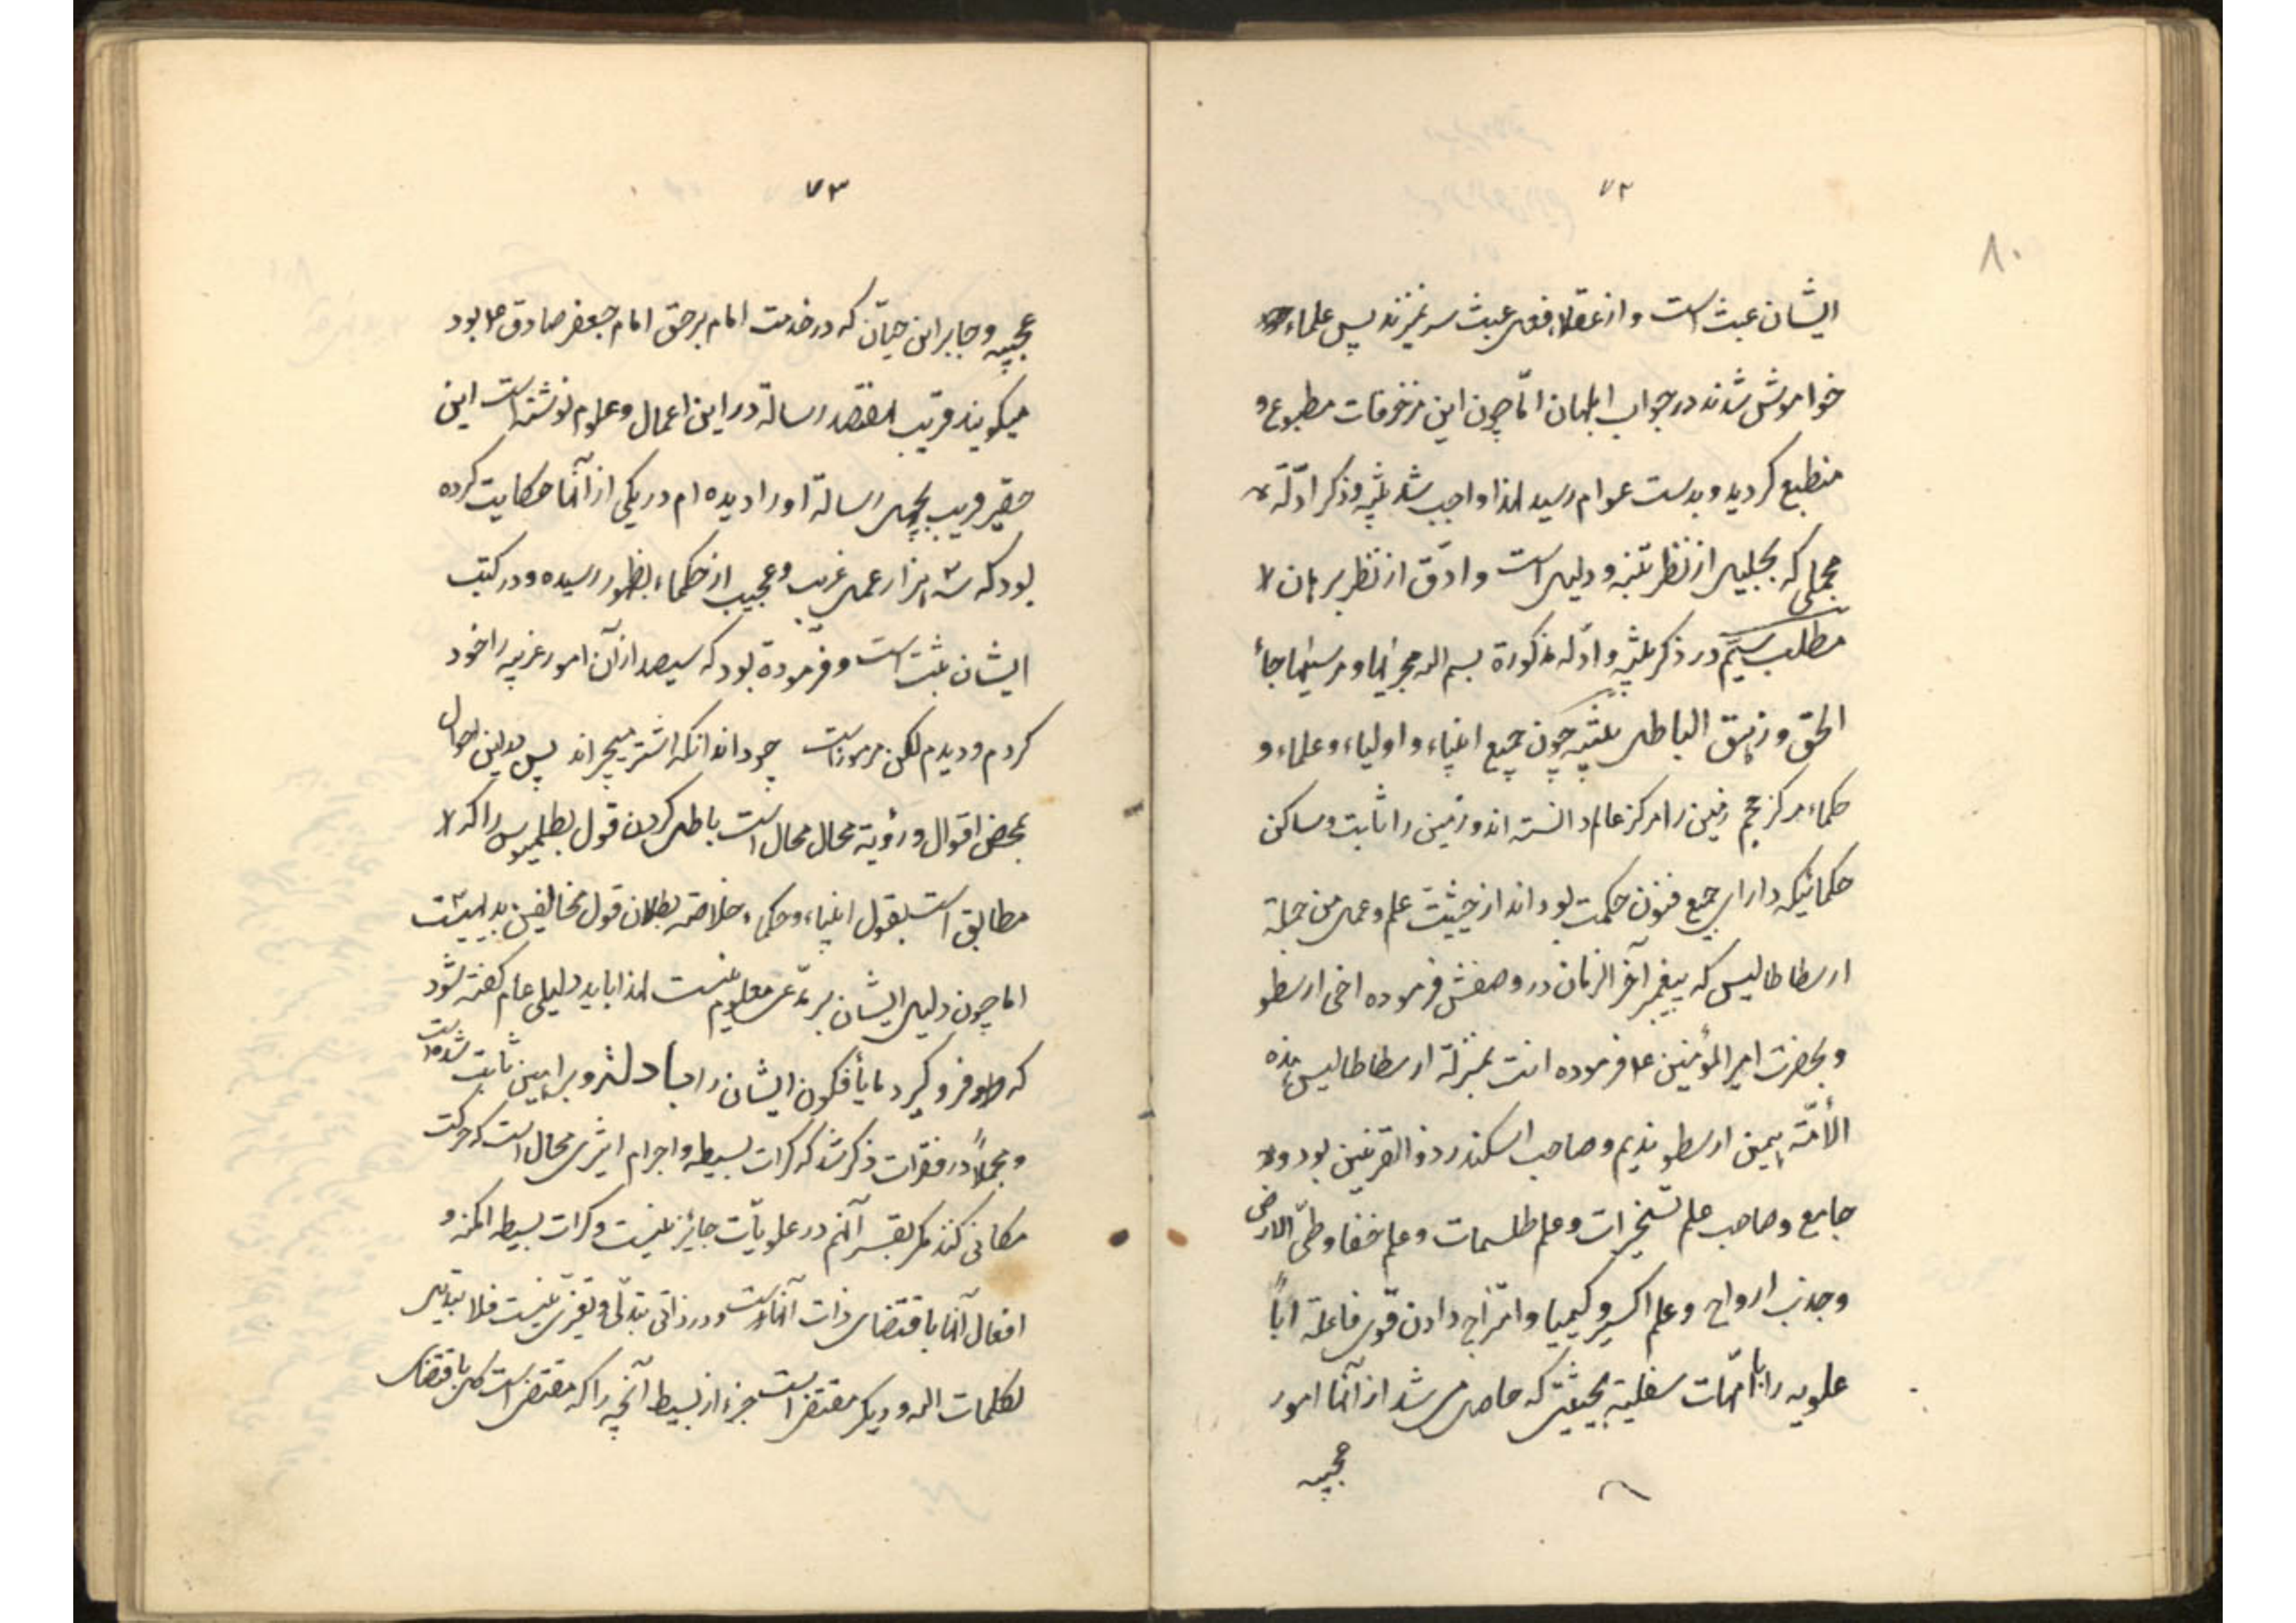 ۷۲
۸۰
ایشان عبث است و از عقلا فعل عبث سر نمیزند پس علماء
خواموش شدند در جواب ابلهان امّا چون این مزخرفات مطبوع و
منطبع کردید و بدست عوام رسید لهذا واجب شد تنبیه و ذکر ادلّه
مجملی که بجلیل از نظر تنبه و دلیل است و ادّق از نظر برهان
مطلب سیّم در ذکر تنبیه و ادله مذکورة بسم الله مجریها و مرسیها جاء
الحق و زهق الباطل تنبیه چون جمیع انبیاء و اولیاء و علماء و
حکماء مرکز حجم زمین را مرکز عالم دانسته اند و زمین را ثابت و ساکن
حکمائیکه دارای جمیع فنون حکمت بوداند از حیثیت علم و عمل من جملة
ارسطاطالیس که پیغمبر آخر الزمان در وصفش فرموده اخی ارسطو
و بحضرت امیر المؤمنین ع فرموده انت بمنزلة ارسطاطالیس هذه
الأمّة همین ارسطو ندیم و صاحب اسکندر ذو القرنین بود و
جامع و صاحب علم تسخیرات و علم طلسمات و علم خفا و طیّ الارض
و جذب ارواح و علم اکسیر و کیمیا و امتزاج دادن قوی فاعلة اباً
علویه را با امّهات سفلیة بحیثیتی که حاصل می شد از آنها امور
عجیبه
۷۳
عجیبه و جابر ابن حیّان که در خدمت امام برحق امام جعفر صادق ع بود
میکویند قریب هفتصد رسالة در این اعمال و علوم نوشته است این
حقیر قریب بچهل رسالة او را دیده ام در یکی از آنها حکایت کرده
بود که سه هزار عمل غریب و عجیب از حکماء بظهور رسیده و در کتب
ایشان ثبت است و فرمودة بود که سیصد از آن امور غریبه را خود
کردم و دیدم لکن مرموز است چوداند انکه اشتر میچراند پس بدین احوال
بمحض اقوال و رؤیة محال محال است باطل کردن قول بطلمیوس را که
مطابق است بقول انبیاء و حکماء خلاصه بطلان قول مخالفین بدیهیست
اما چون دلیل ایشان بر مدّعی معلوم نیست لهذا باید دلیلی عام کفته شود
که فرو کیرد ما یأفکون ایشان را با دلّه و براهین ثابت شده است
و مجملاً در فقرات ذکر شد که کرات بسیطه و اجرام اثیری محال است که حرکت
مکانی کنند مکر بقسر آنهم در علویّات جایز نیست و کرات بسیطه امکنه و
افعال آنها باقتضای ذات آنهاست و در ذاتی تبدّل و تغیّری نیست فلا تبدیل
لکلمات الله و دیکر مقتضی است جزء از بسیط آنچه را که مقتضی است کل باقتضای